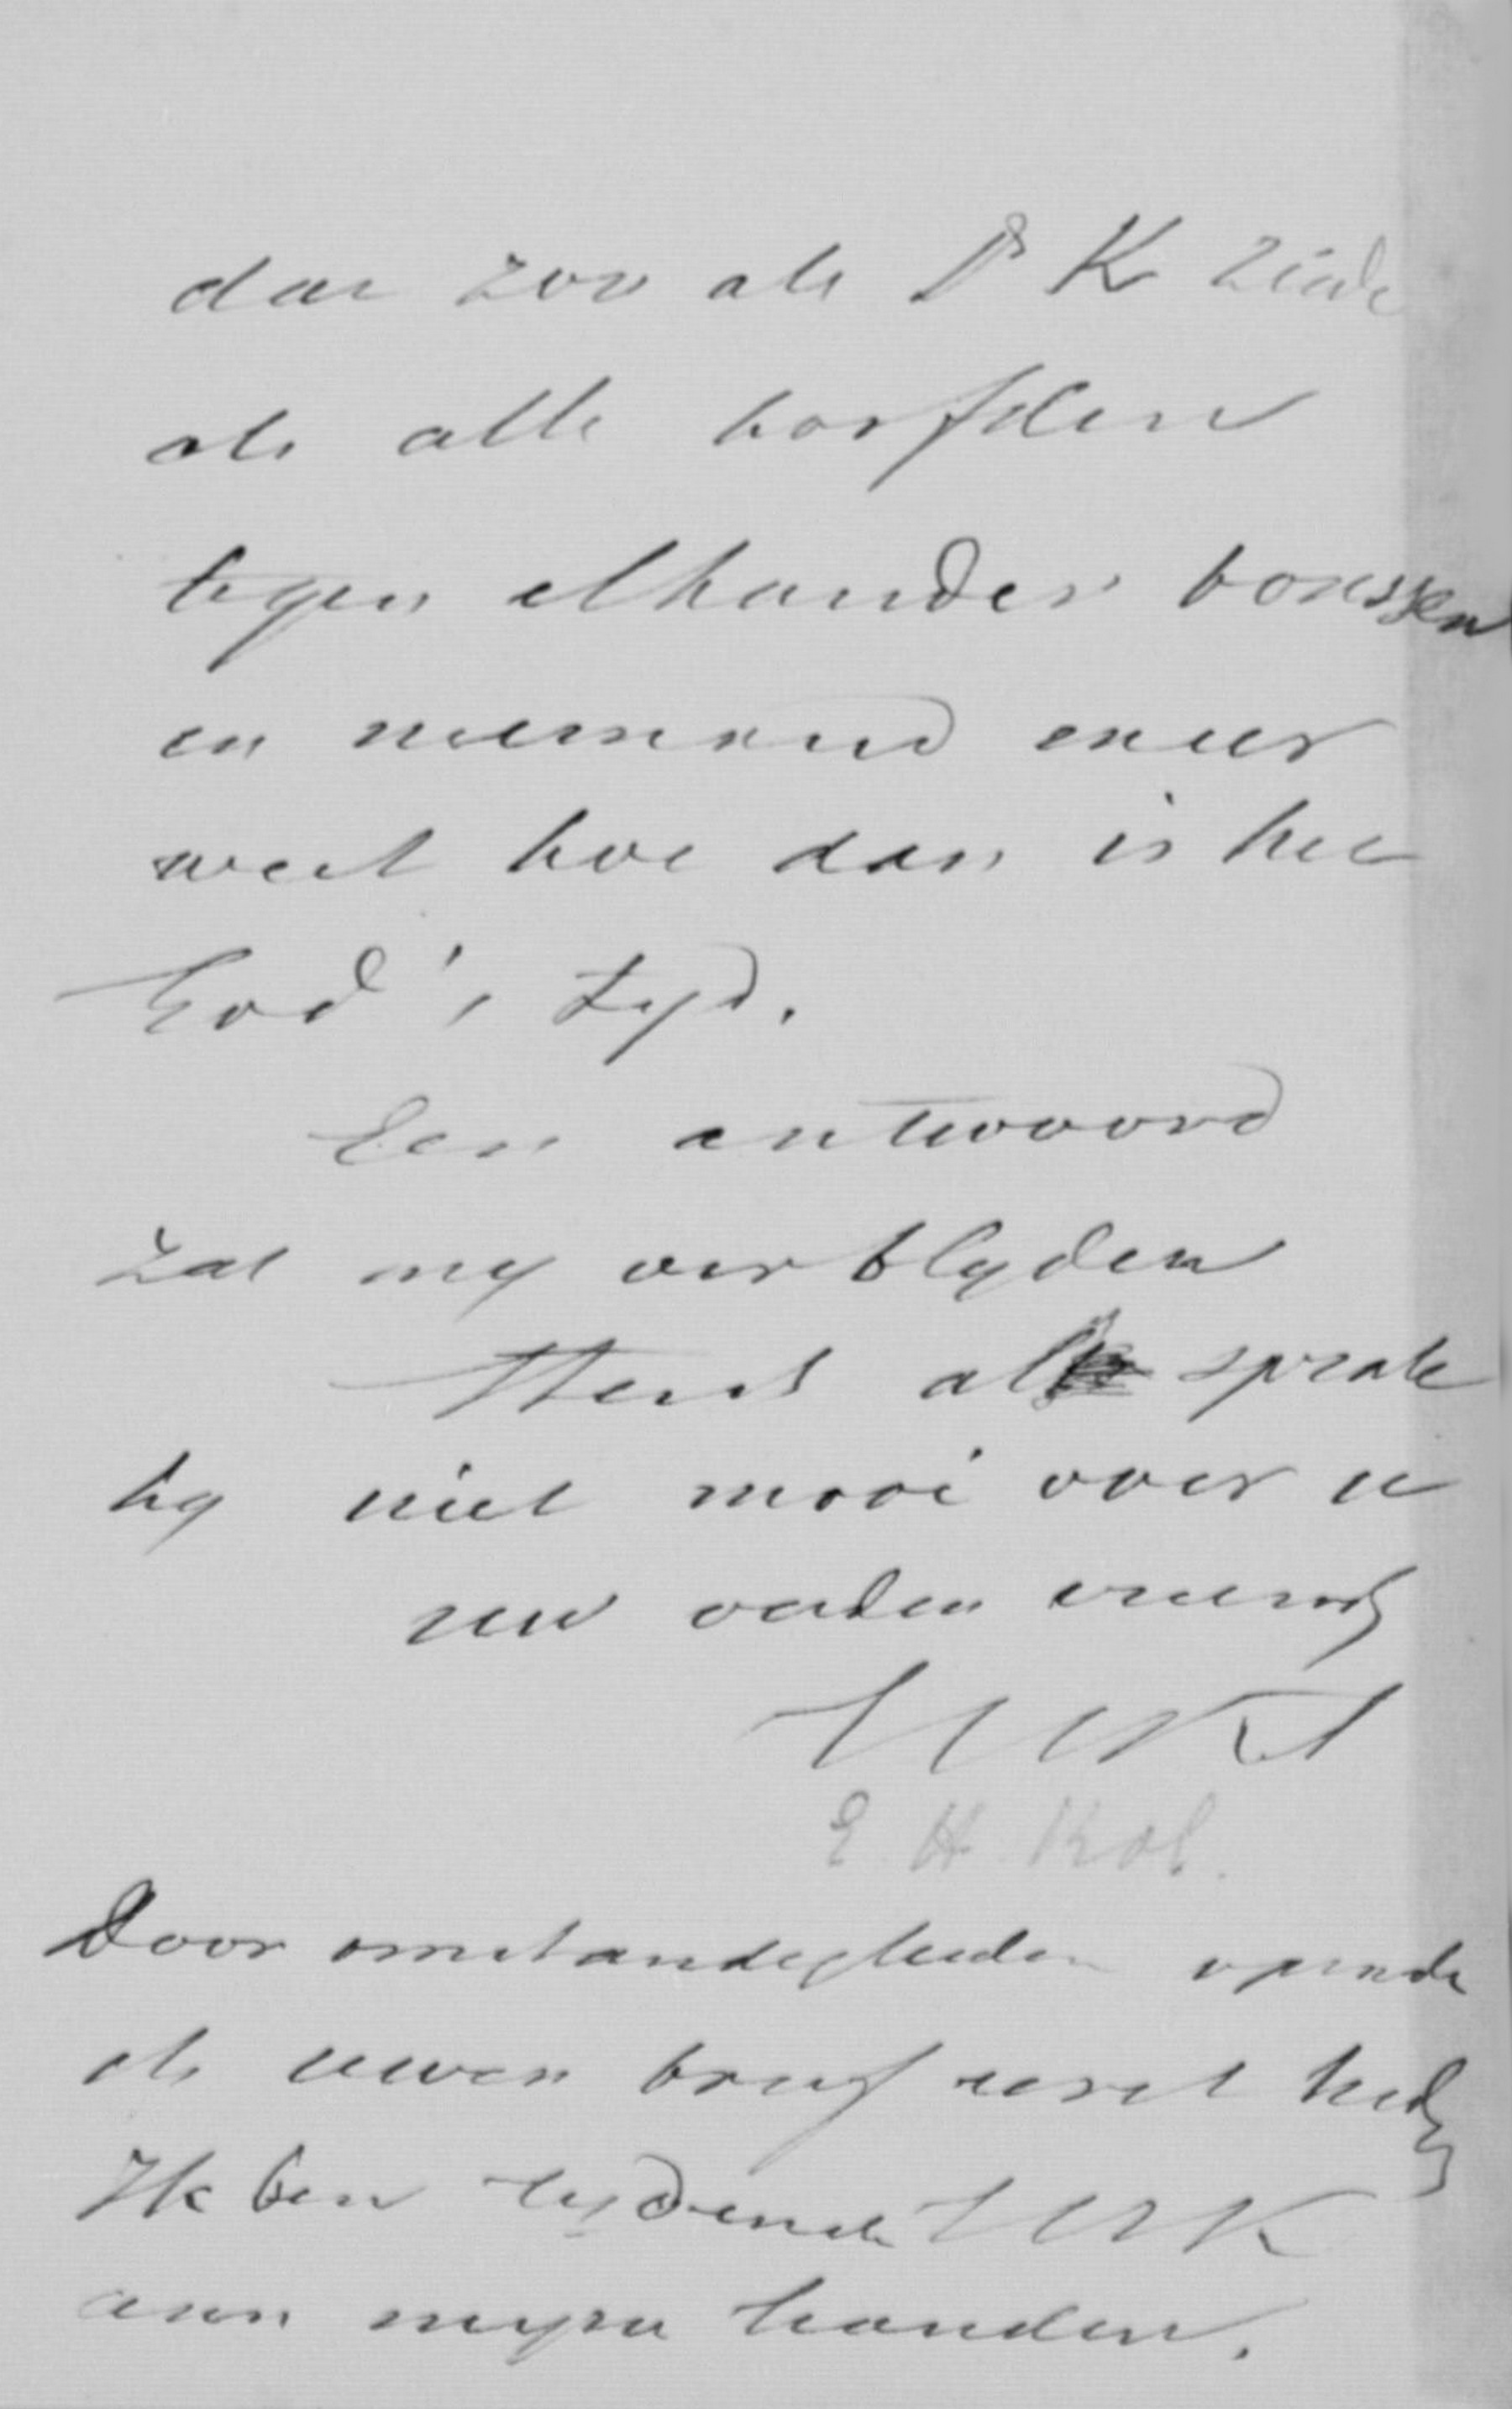 dan zoo als Dr K zeide
als alle hoofden
tegen elkander bonssen
en niemand meer
weet hoe dan is het
God's tyd.
Een antwoord
zal my verblyden
Steeds al sprak
hy niet mooi over u
uw ouden vriend
E. H. Kol.
Door omstandigheden opende
ik uwen brief eerst
Ik ben lydende
aan myne handen.